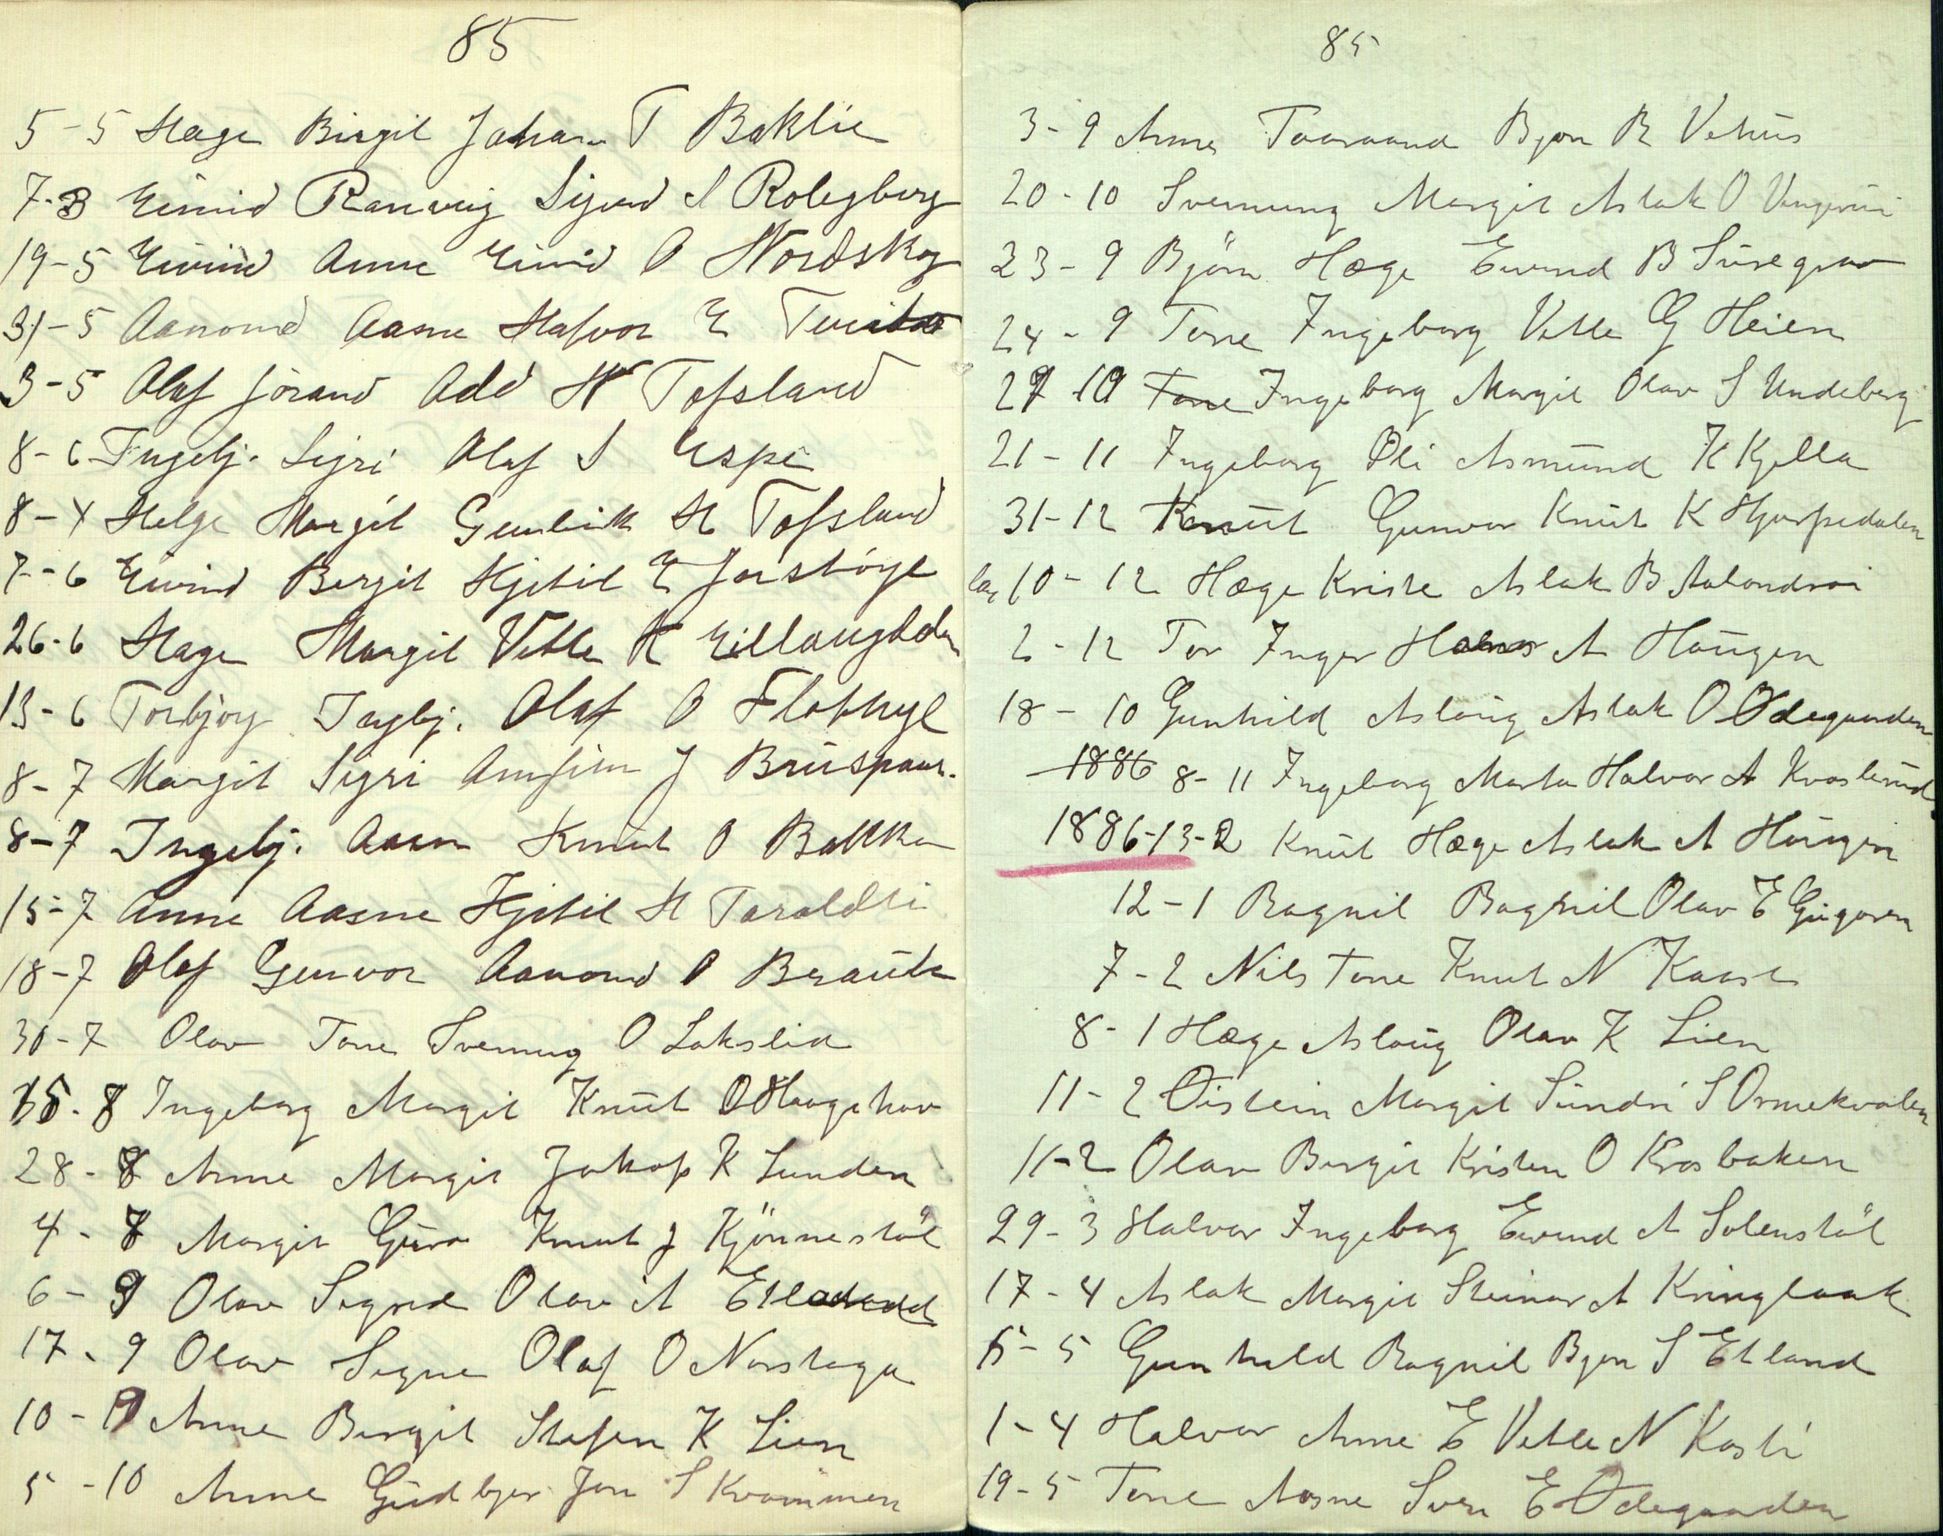 85
5-5 Hæge Birgit Johan T Bøklie
7-3 Eivind Ranveig Sigurd S Rolegberg
19-5 Eivind Anne Eivind O Nordskog
31-5 Aanond Aasne Halvor E
3-5 Olaf Jörand Add H Tofsland
8-6 Ingebj. Sigri Olaf S Espe
8-4 Helge Margit Gunleik H Tofsland
7-6 Eivind Bergit Kjetil E
26-6 Hæge Margit Vetle K
13-6 Torbjorg Ingbj. Olaf O Flothyl
8-7 Margit Sigri Arnfinn J
8-7 Ingebj. Aasn Knut O Bakken
15-7 Anne Aasne Kjetil H Taraldli
18-7 Olaf Gunvor Aanond O
30-7 Olav Tone Svenung O Lokslid
15-8 Ingeborg Margit Knut O Haagehav
28-8 Anne Margit Jakop K Lunden
4-8 Margit Guro Knut J Kjönnestöl
6-9 Olav Signe Olav A
17-9 Olav Signe Olaf O Norstoga
10-9 Anne Bergit Stefen K Lien
5-10 Anne Gudbjør Jon S Kvammen
85
3-9 Anne Taaraand Bjon R Vehus
20-10 Svennung Margit Aslak O
23-9 Björn Hæge Eivind B
24-9 Tone Ingeborg Vetle G Heien
27-10 Tone Ingeborg Margit Olav S Undeberg
21-11 Ingeborg Oli Asmund K Kjella
31-12 Knut Gunvor Knut K Hjorpedalen
10-12 Hæge Kriste Aslak B
2-12 Tor Inger A Haugen
18-10 Gunhild Aslaug Aslak O Ödegaarden
1886 8-11 Ingeborg Marta Halvor A
1886-13-2 Knut Hæge Aslak A Haugen
12-1 Ragnil Ragnil Olav E Gugaren
7-2 Nils Tone Knut N Kaase
8-1 Hæge Aslaug Olav K Lien
11-2 Öistein Margit Sundri S Ormekvalen
11-2 Olav Bergit Kristen O Krosbaken
29-3 Halvor Ingeborg Eivind A Solenstöl
17-4 Aslak Margit Steinar A Kringlaak
5-5 Gunhild Ragnil Bjon S Etland
1-4 Halvor Anne E Vetle N Kosti
19-5 Tone Aasne Sven E Ödegaarden